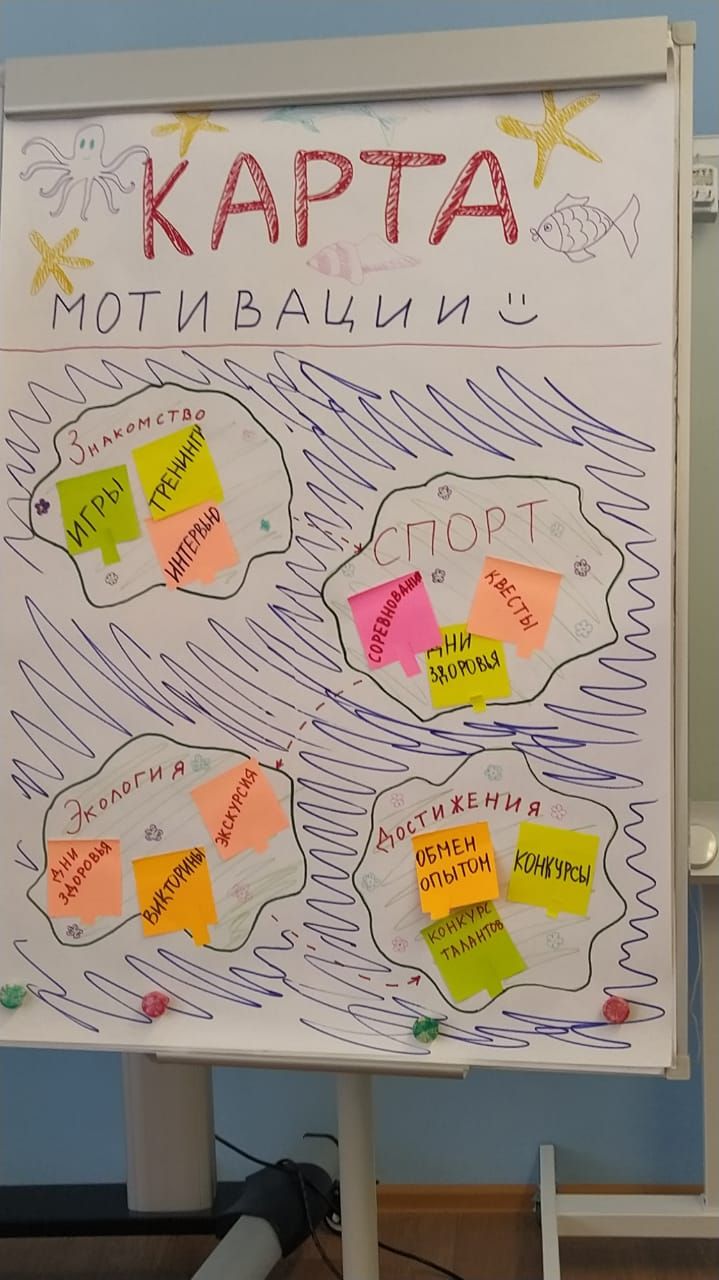 КАРТА
МОТИВАЦИИ
Знакомство
ИГРЫ
ТРЕНИНГИ
ИНТЕРВЬЮ
СПОРТ
СОРЕВНОВАНИ
КВЕСТЫ
ДНИ
ЗДОРОВЬЯ
Экология
ДНИ
ЗДОРОВЬЯ
ВИКТОРИНЫ
ЭКСКУРСИЯ
Достижения
ОБМЕН
ОПЫТОМ
КОНКУРСЫ
КОНКУРС
ТАЛАНТОВ